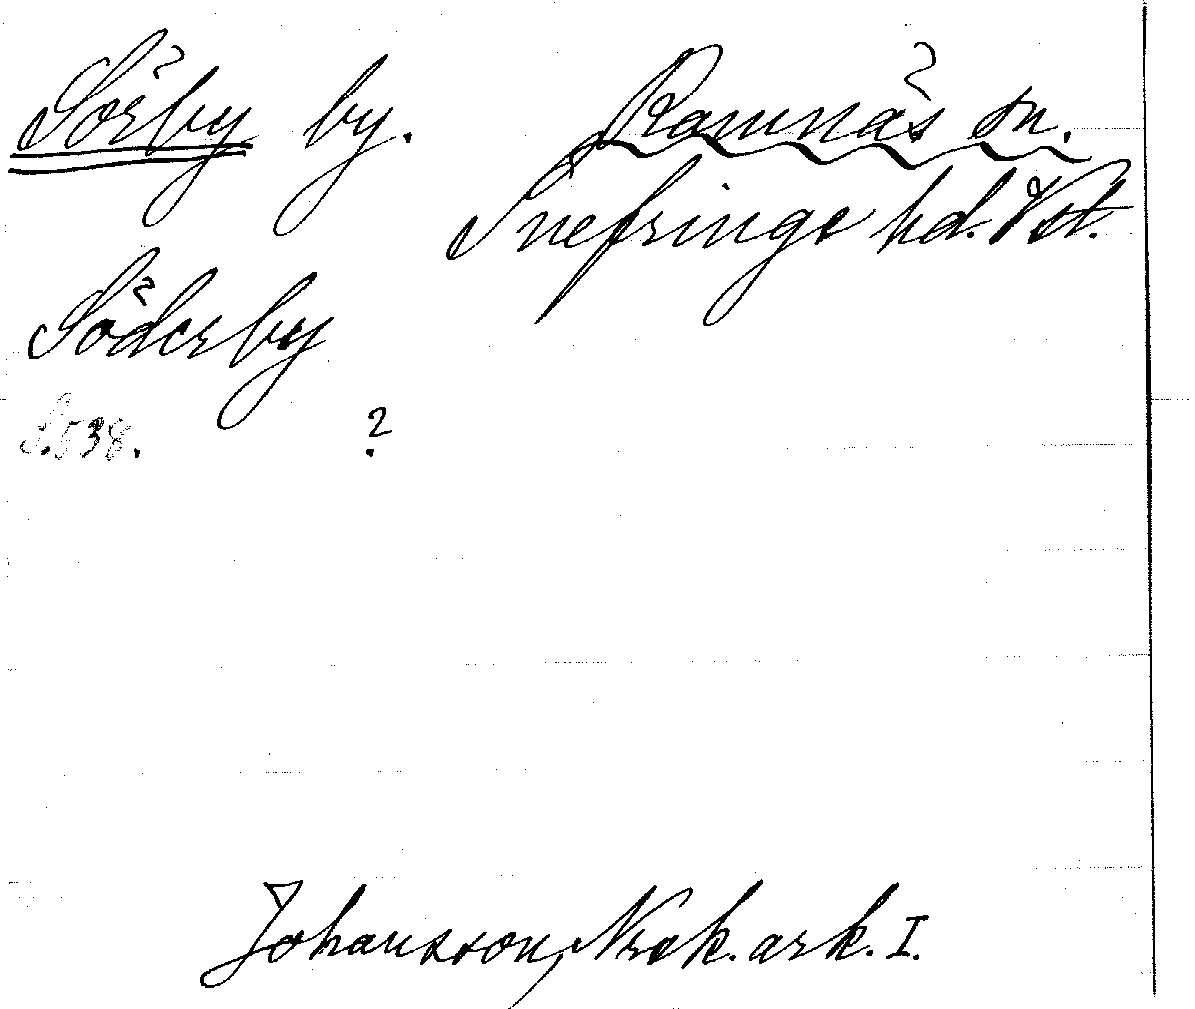 Sörby by. Ramnäs sn.
Snefringe hd. Vst.
Söderby
S. 538. ?
Johansson, Norak. ark. I.